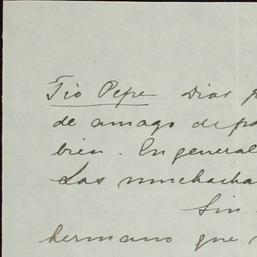 Tío Pepe Dias
de amago de
bien. En general
Las muchacha
Sin
hermano que